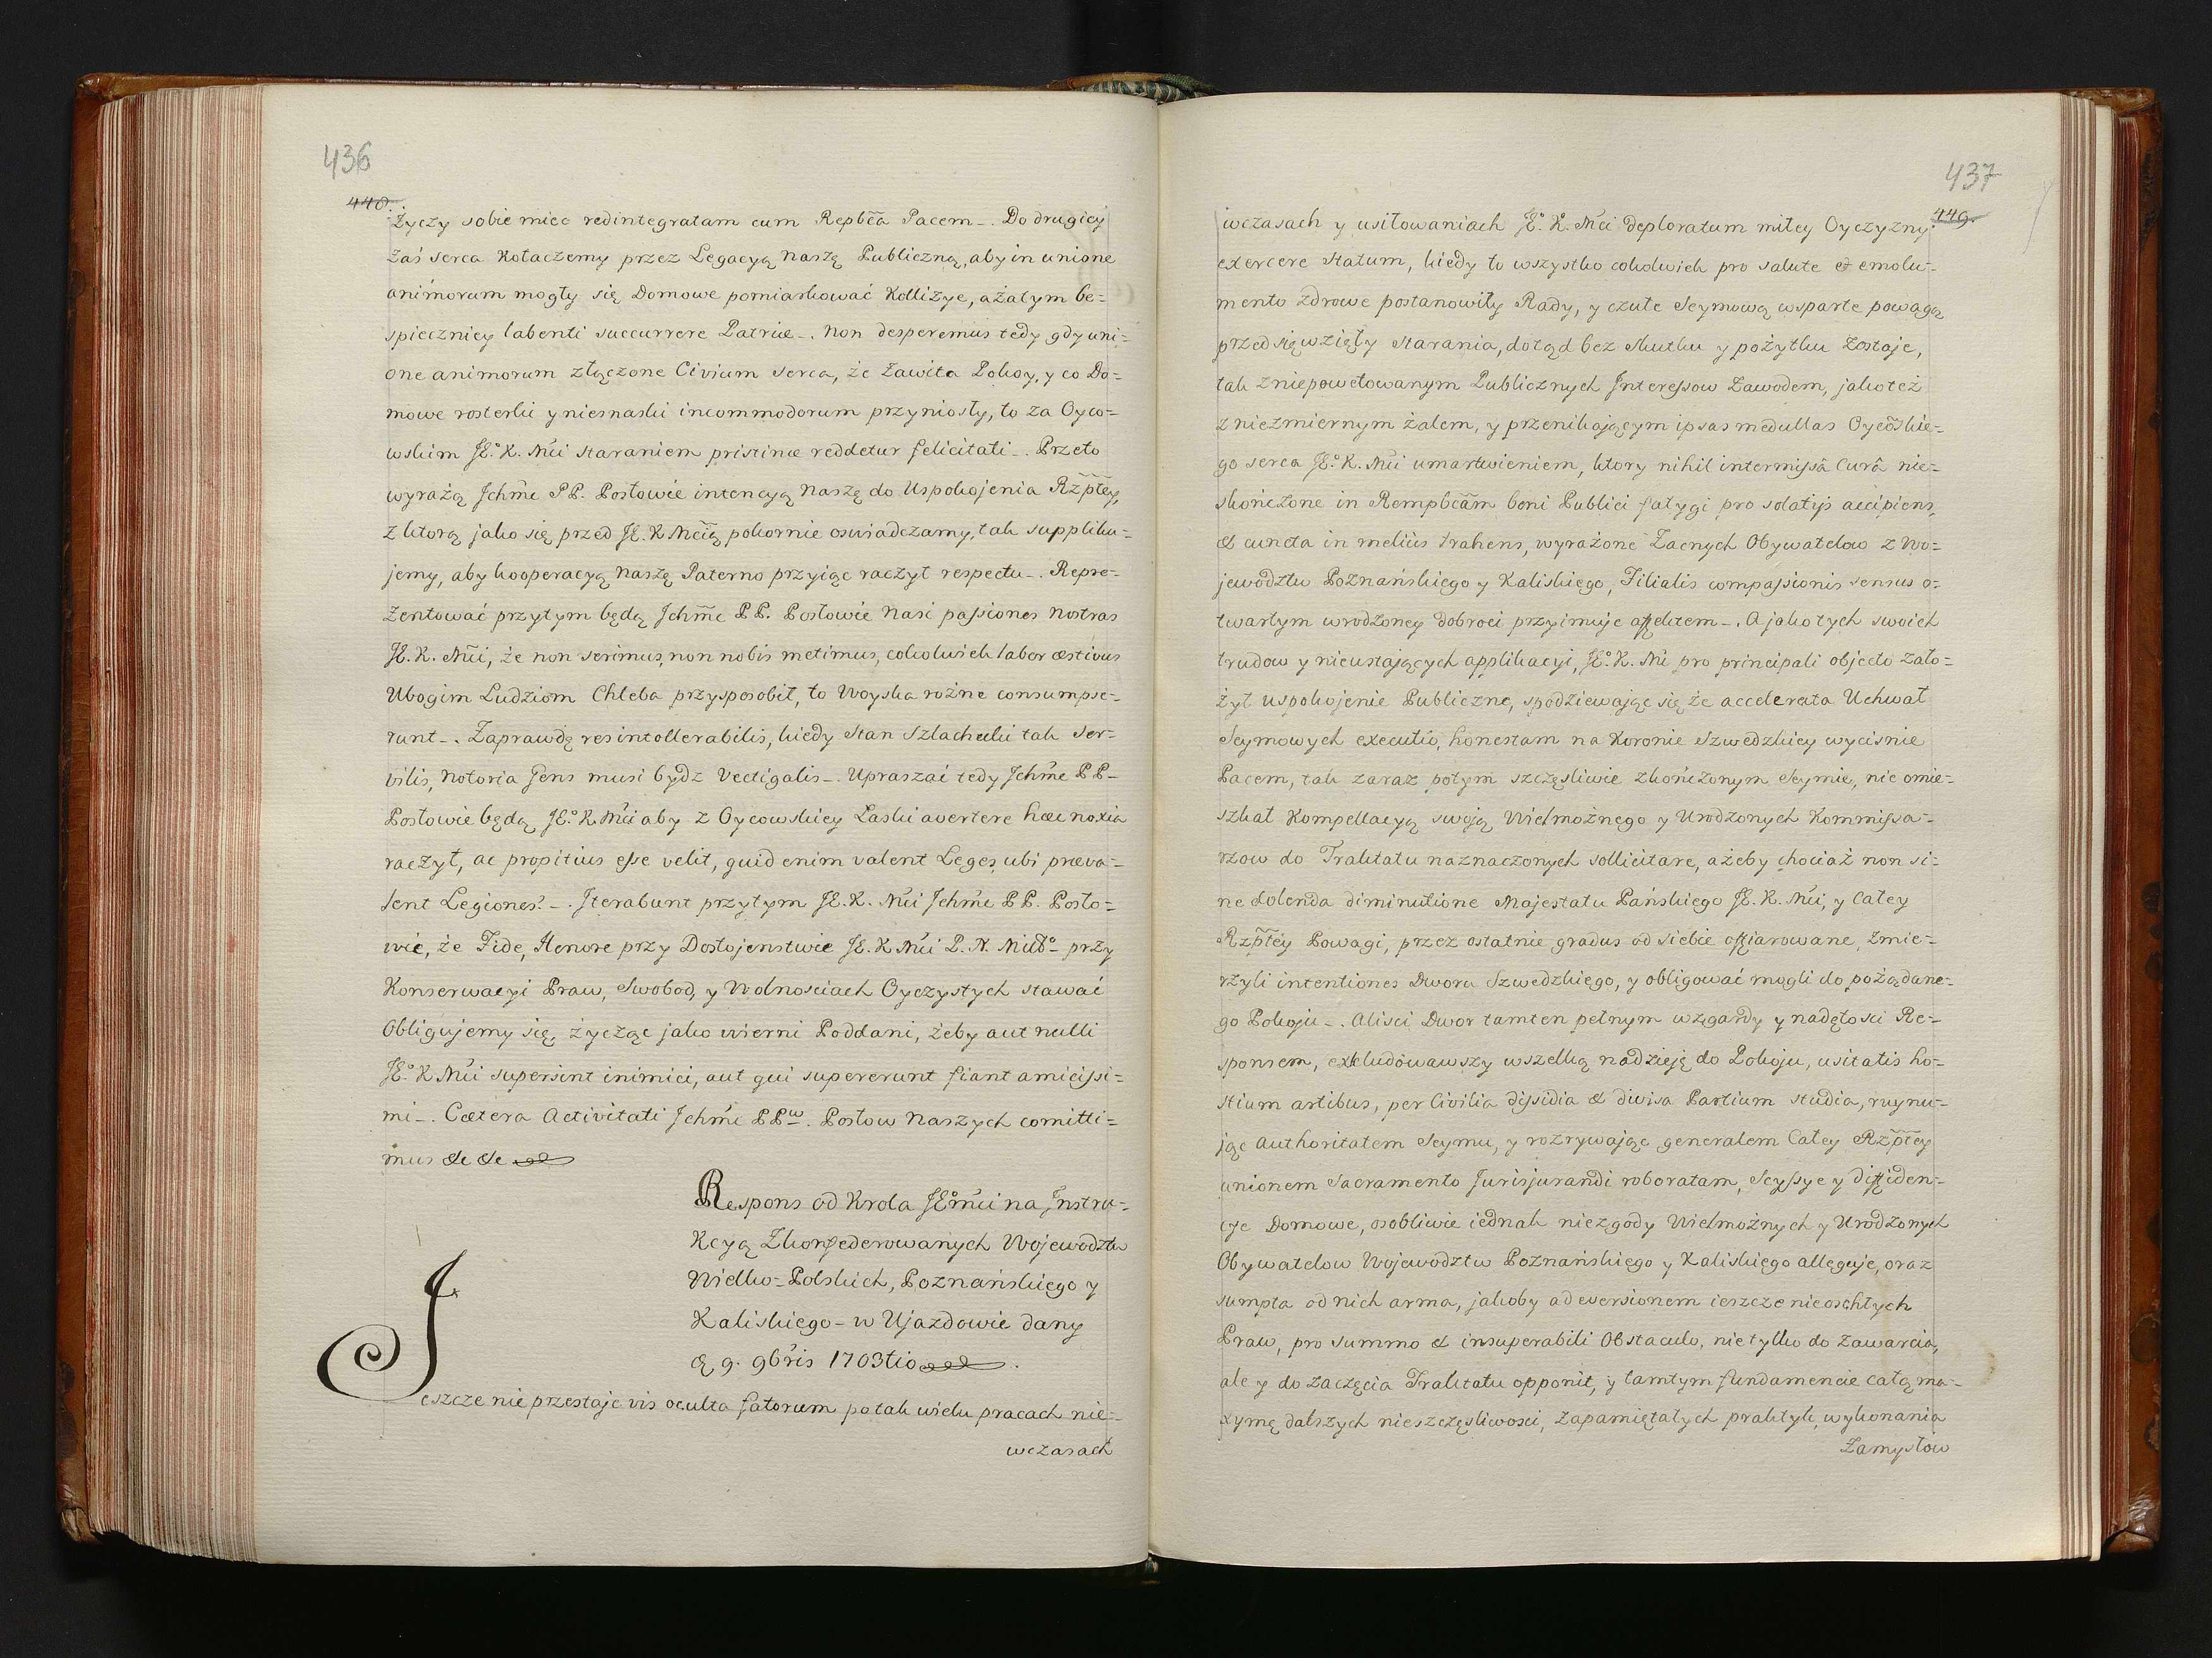 436
448.
Życzy sobie miec redintegratam cum Repbča Pacem -. Do drugiey
Zaś serca Kołaczemy przez Legacyą naszą Publiczną, aby in unione
animorum mogły się Domowe pomiarkować Kollizye, a zatym be=
spieczniey labenti succurrere Patriæ -. Non desperemus tedy gdy uni=
one animorum złączone Civium serca, że Zawita Pokoy, y co Do=
mowe rosterki y niesnaski incommodorum przyniosły, to za Oyco=
wskim JE.º K. Mci staraniem pristinæ reddetur felicitati -. Przeto
wyrażą Jchmc PP. Posłowie intencyą naszą do Uspokojenia Rzptey,
z ktorą jako się przed JE. K Mcią pokornie oswiadczamy, tak suppliku=
jemy, aby kooperacyą naszą Paterno przyiąc raczył respectu -. Repre=
zentować przytym będą Jchmc PP. Posłowie Nasi passiones nostras
JE. K. Mci, że non serimus, non nobis metimus, cokolwiek labor æstivus
Ubogim Ludziom Chleba przysposobił, to Woyska rożne consumpse=
runt -. Zaprawdę res intollerabilis, kiedy Stan Szlachecki tak ser=
vilis, notoria Gens musi bydz Vectigalis -. Upraszać tedy Jchmc PP-
Posłowie będą JE.º K Mci aby z Oycowskiey Łaski avertere hæc noxia
raczył, ac propitius esse velit, quid enim valent Leges ubi præva=
lent Legiones? -. Jterabunt przytym JE. K. Mci Jchmc PP. Posło=
wie, że Fide, Honore przy Dostojenstwie JE. K Mci P. N. Miłº- przy
Konserwacyi Praw, Swobod, y Wolnosciach Oyczystych stawać
Obligujemy się, życząc jako wierni Poddani, żeby aut nulli
JE.º K Mci supersint inimici, aut qui supererunt fiant amicissi=
mi -. Cætera Activitati Jchmc PPw. Posłow Naszych comitti=
mus &c &c
Respons od Krola JEºmci na Jnstru=
Kcyą Zkonfederowanych Wojewodztw
Wielko-Polskich, Poznańskiego y
Kaliskiego - w Ujazdowie dany
9. 9bris 1703tio
Jeszcze nie przestaje vis oculta fatorum po tak wielu pracach nie=
wczasach
437
449.
wczasach y usiłowaniach JE.º K. Mci deploratum miłey Oyczyzny
exercere statum, kiedy to wszystko cokolwiek pro salute & emolu=
mento zdrowe postanowiły Rady, y czułe Seymową wsparte powagą
przedsięwzięły starania, dotąd bez skutku y pożytku zostaje,
tak z niepowetowanym Publicznych Jnteressow Zawodem, jako też
z niezmiernym żalem, y przenikającym ipsas medullas Oycoskie=
go serca JE.º K. Mci umartwieniem, ktory nihil intermissâ Curâ nie=
skończone in Rempbcam boni Publici fatygi pro solatijs accipiens,
& cuncta in melius trahens, wyrażone Zacnych Obywatelow z Wo=
jewodztw Poznańskiego y Kaliskiego, Filialis compassionis sensus o=
twartym wrodzoney dobroci przyimuje affektem -. A jako tych swoich
trudow y nieustających applikacyi, JE.º K. Mć pro principali objecto zało=
żył uspokojenie Publiczne, spodziewając się że accelerata Uchwał
Seymowych executio, honestam na Koronie Szwedzkiey wycisnie
Pacem, tak zaraz potym szczęsliwie zkończonym Seymie, nie omie=
szkał Kompellacyą swoją Wielmożnego y Urodzonych Kommissa=
rzow do Traktatu naznaczonych sollicitare, ażeby chociaż non si=
ne dolenda diminutione Majestatu Pańskiego JE. K. Mci, y Całey
Rzptey Powagi, przez ostatnie gradus od siebie offiarowane, zmie=
rzyli intentiones Dworu Szwedzkiego, y obligować mogli do pożądane=
go Pokoju -. Alisci Dwor tamten pełnym wzgardy y nadętosci Re=
sponsem, exkludowawszy wszelką nadzieję do Pokoju, usitatis ho=
stium artibus, per Civilia dissidia & divisa Partium studia, ruynu=
jąc Authoritatem Seymu, y rozrywając generalem Całey Rzptey
unionem Sacramento Jurisjurandi roboratam, Scyssye y diffiden=
cye Domowe, osobliwie iednak niezgody Wielmożnych y Urodzonych
Obywatelow Wojewodztw Poznańskiego y Kaliskiego alleguje, oraz
sumpta od nich arma, jakoby ad eversionem ieszcze nieoschłych
Praw, pro summo & insuperabili Obstaculo, nie tylko do Zawarcia,
ale y do zaczęcia Traktatu opponit, y tamtym fundamencie całą ma=
xymę dalszych nieszczęsliwosci, zapamiętałych praktyk, wykonania
Zamysłow